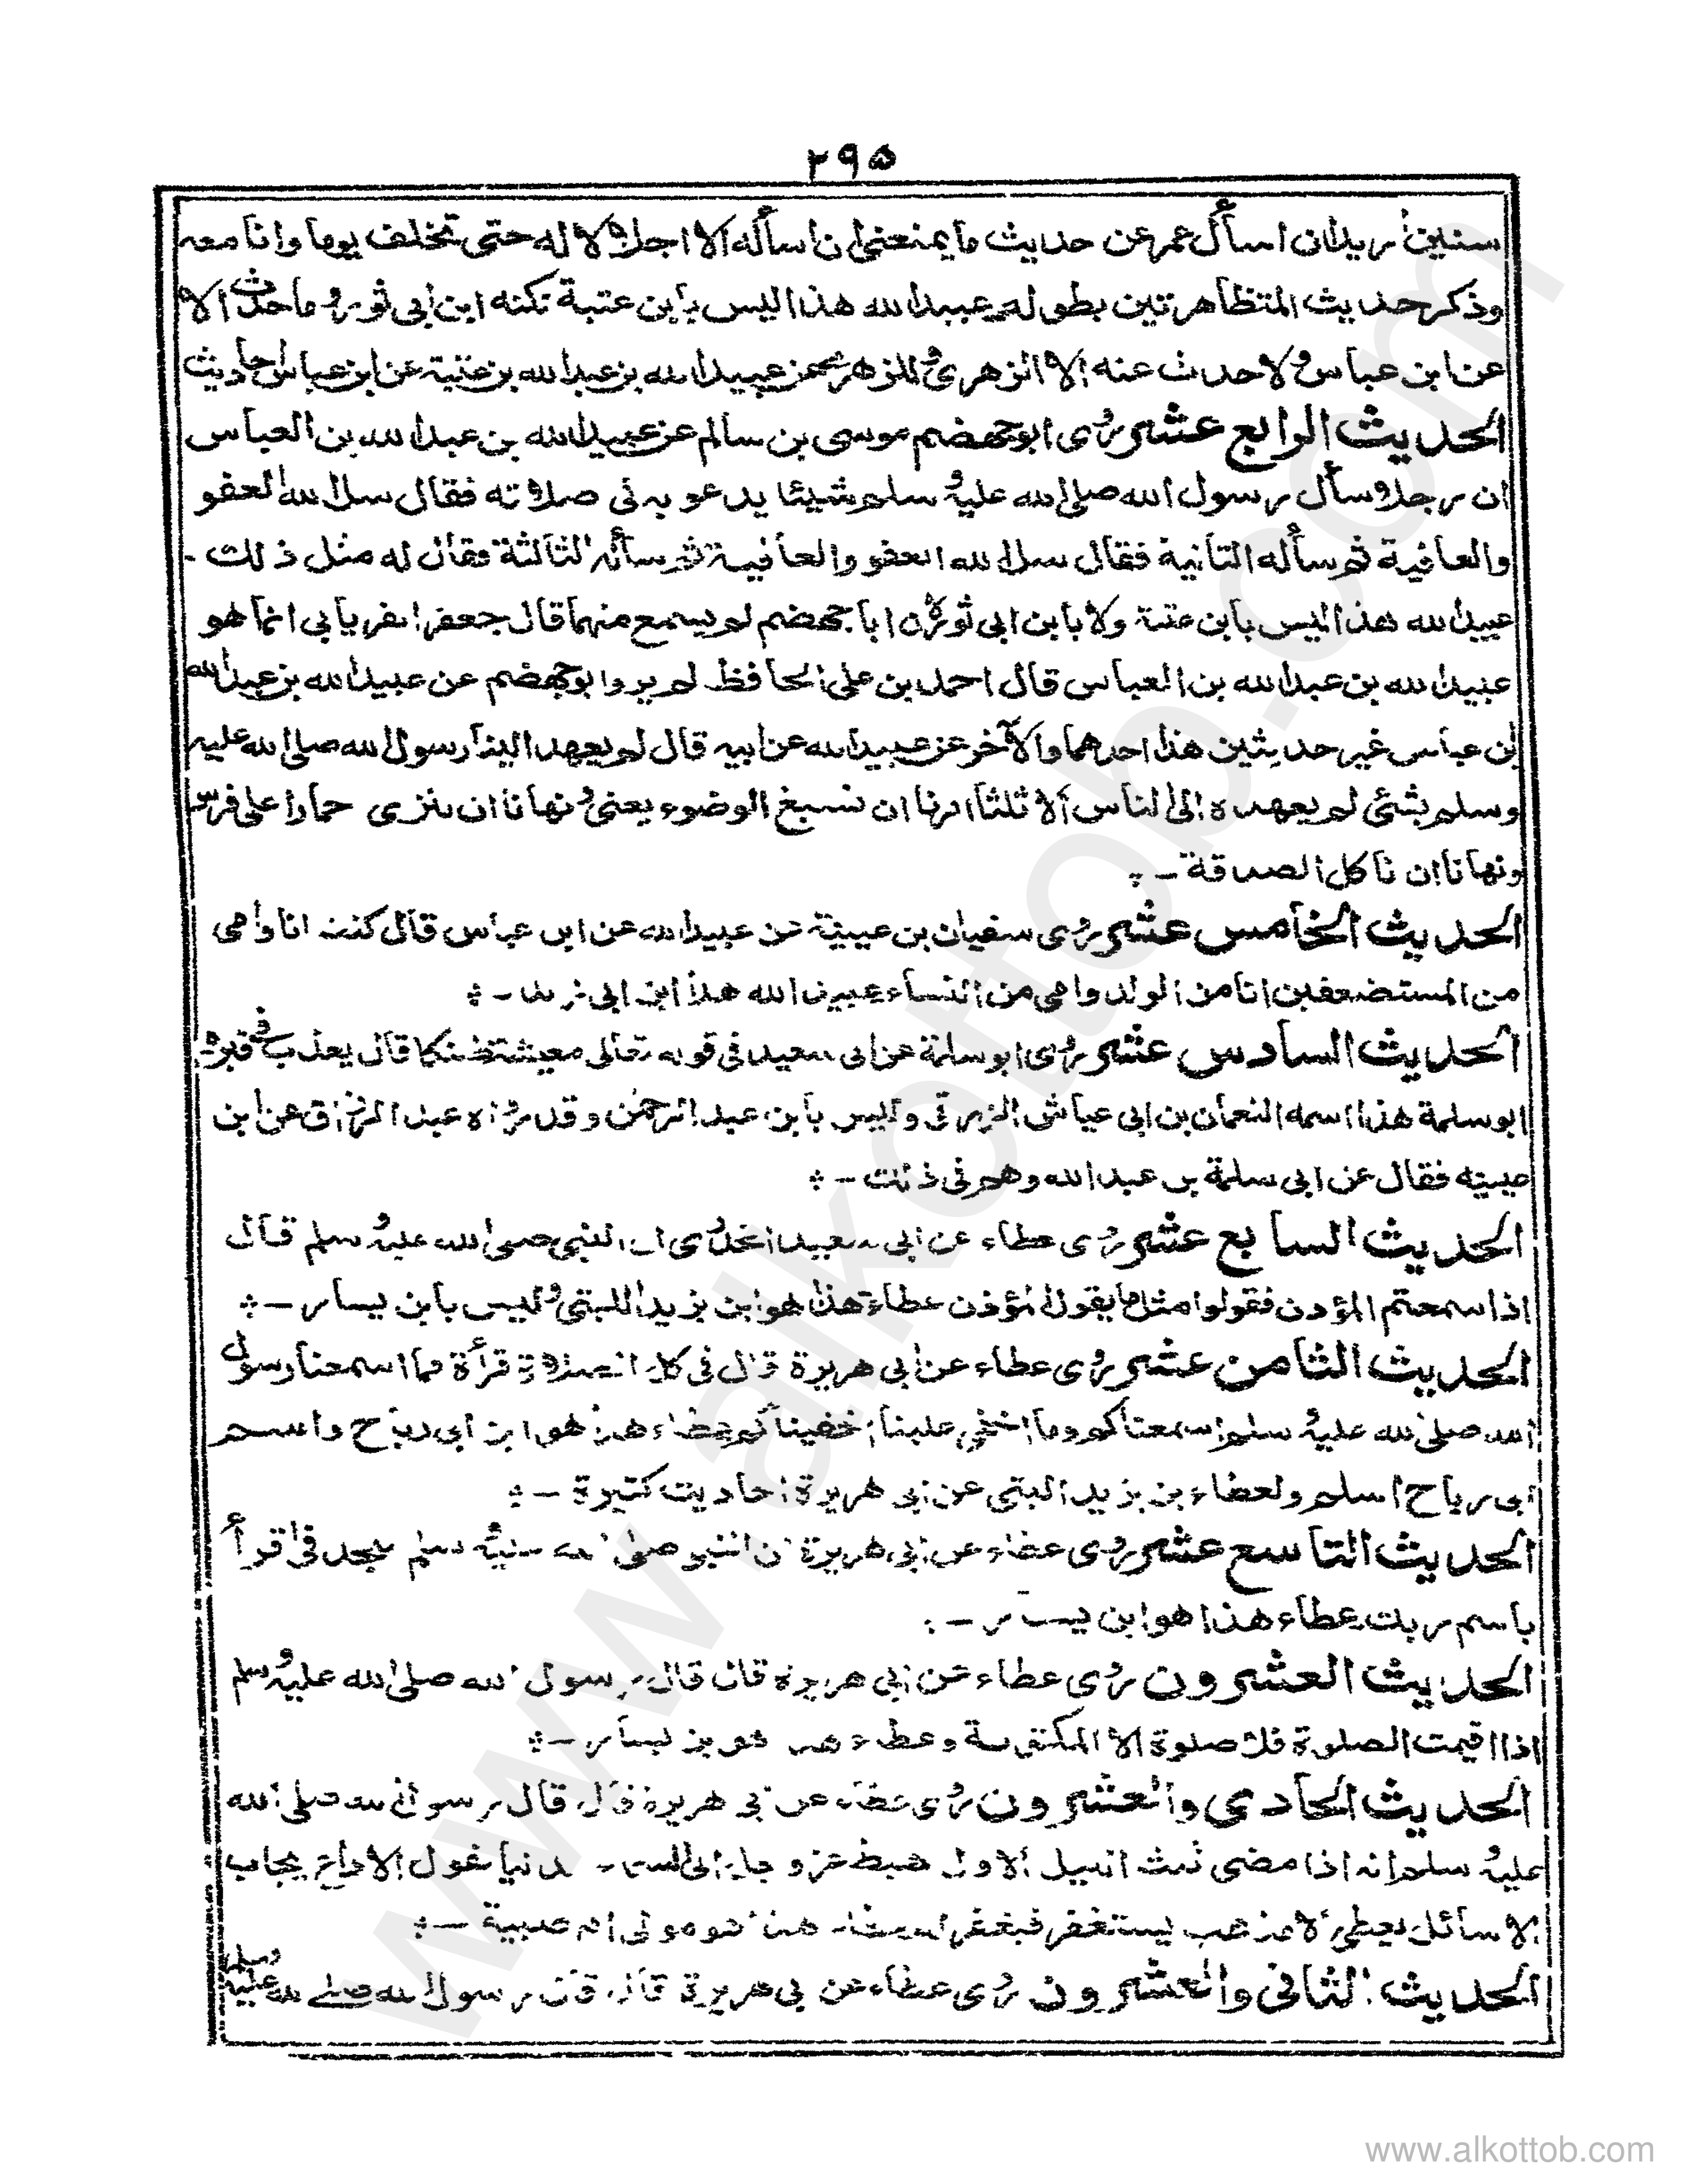 ٢٩٥
سنين اريد ان اسأل عمر عن حديث ما يمنعنى ان اسأله الا اجلالا له حتى تخلف يوما وانا معه
وذكر حديث المتظاهرتين بطوله عبيد الله هذا ليس بابن عتبة لكنه ابن ابى ثور وما حدث الا
عن ابن عباس ولا حدث عنه الا الزهرى وللزهرى عن عبيد الله بن عبد الله بن عتبة عن ابن عباس احاديث
الحديث الرابع عشر روى ابو جهضم موسى بن سالم عن عبيد الله بن عبد الله بن العباس
ان رجلا سأل رسول الله صلى الله عليه وسلم شيئا يدعو به فى صلاته فقال سل الله العفو
والعافية ثم سأله الثانية فقال سل الله العفو والعافية ثم سأله الثالثة فقال له مثل ذلك -
عبيد الله هذا ليس بابن عتبة ولا بابن ابى ثور لان ابا جهضم لم يسمع منهما قال جعفر الفريابى انما هو
عبيد الله بن عبد الله بن العباس قال احمد بن على الحافظ لم يرو ابو جهضم عن عبيد الله بن عبد الله
ابن عباس غير حديثين هذا احدهما والآخر عن عبيد الله عن ابيه قال لم يعهد الينا رسول الله صلى الله عليه
وسلم بشئ لم يعهده الى الناس الا ثلثا امرنا ان نسبغ الوضوء يعنى ونهانا ان ننزى حمارا على فرس
ونهانا ان ناكل الصدقة -
الحديث الخامس عشر روى سفيان بن عيينة عن عبيد الله عن ابن عباس قال كنت انا وامى
من المستضعفين انا من الولدان وامى من النساء عبيد الله هذا ابن ابى يزيد -
الحديث السادس عشر روى ابو سلمة عن ابى سعيد فى قوله تعالى معيشة ضنكا قال يعذب فى قبره
ابو سلمة هذا اسمه النعمان بن ابى عياش الزرقى وليس بابن عبد الرحمن وقد رواه عبد الرزاق عن ابن
عيينه فقال عن ابى سلمة بن عبد الله وهم فى ذلك -
الحديث السابع عشر روى عطاء عن ابى سعيد الخدرى ان النبى صلى الله عليه وسلم قال
اذا سمعتم المؤذن فقولوا مثل ما يقول المؤذن عطاء هذا هو ابن يزيد الليثى وليس بابن يسار -
الحديث الثامن عشر روى عطاء عن ابى هريرة قال فى كل الصلاة قرأة فما اسمعنا رسول
الله صلى الله عليه وسلم اسمعناكم وما اخفى علينا اخفينا عليكم عطاء هذا هو ابن ابى رباح واسم
ابى رباح اسلم ولعطاء بن يزيد الليثى عن ابى هريرة احاديث كثيرة -
الحديث التاسع عشر روى عطاء عن ابى هريرة ان النبى صلى الله عليه وسلم سجد فى اقرأ
باسم ربك عطاء هذا هو ابن يسار -
الحديث العشرون روى عطاء عن ابى هريرة قال قال رسول الله صلى الله عليه وسلم
اذا اقيمت الصلوة فلا صلوة الا المكتوبة وعطاء هذا هو بن يسار -
الحديث الحادى والعشرون روى عطاء عن ابى هريرة قال قال رسول الله صلى الله
عليه وسلم انه اذا مضى ثلث الليل الاول هبط عز وجل الى السماء الدنيا يقول الا داع يجاب
الا سائل يعطى الا مذهب يستغفر فيغفر له عطاء هذا هو مولى ام صبية -
الحديث الثانى والعشرون روى عطاء عن ابى هريرة قال قال رسول الله صلى الله عليه وسلم
www.alkottob.com
www.alkottob.com